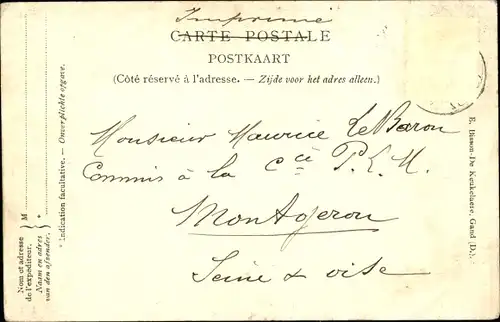 Imprimé
CARTE POSTALE
POSTKAART
(Côté réservé à l'adresse. — Zijde voor het adres alleen.)
Monsieur Maurice LeBaron
Commis à la Cie P.L.M.
Montgeron
Seine & oise
Nom et adresse
de l'expéditeur.
Naam en adres
van den afzender.
M
*
* Indication facultative. — Onverplichte opgave.
E. Bisson-De Keukelaere, Gand (D.).